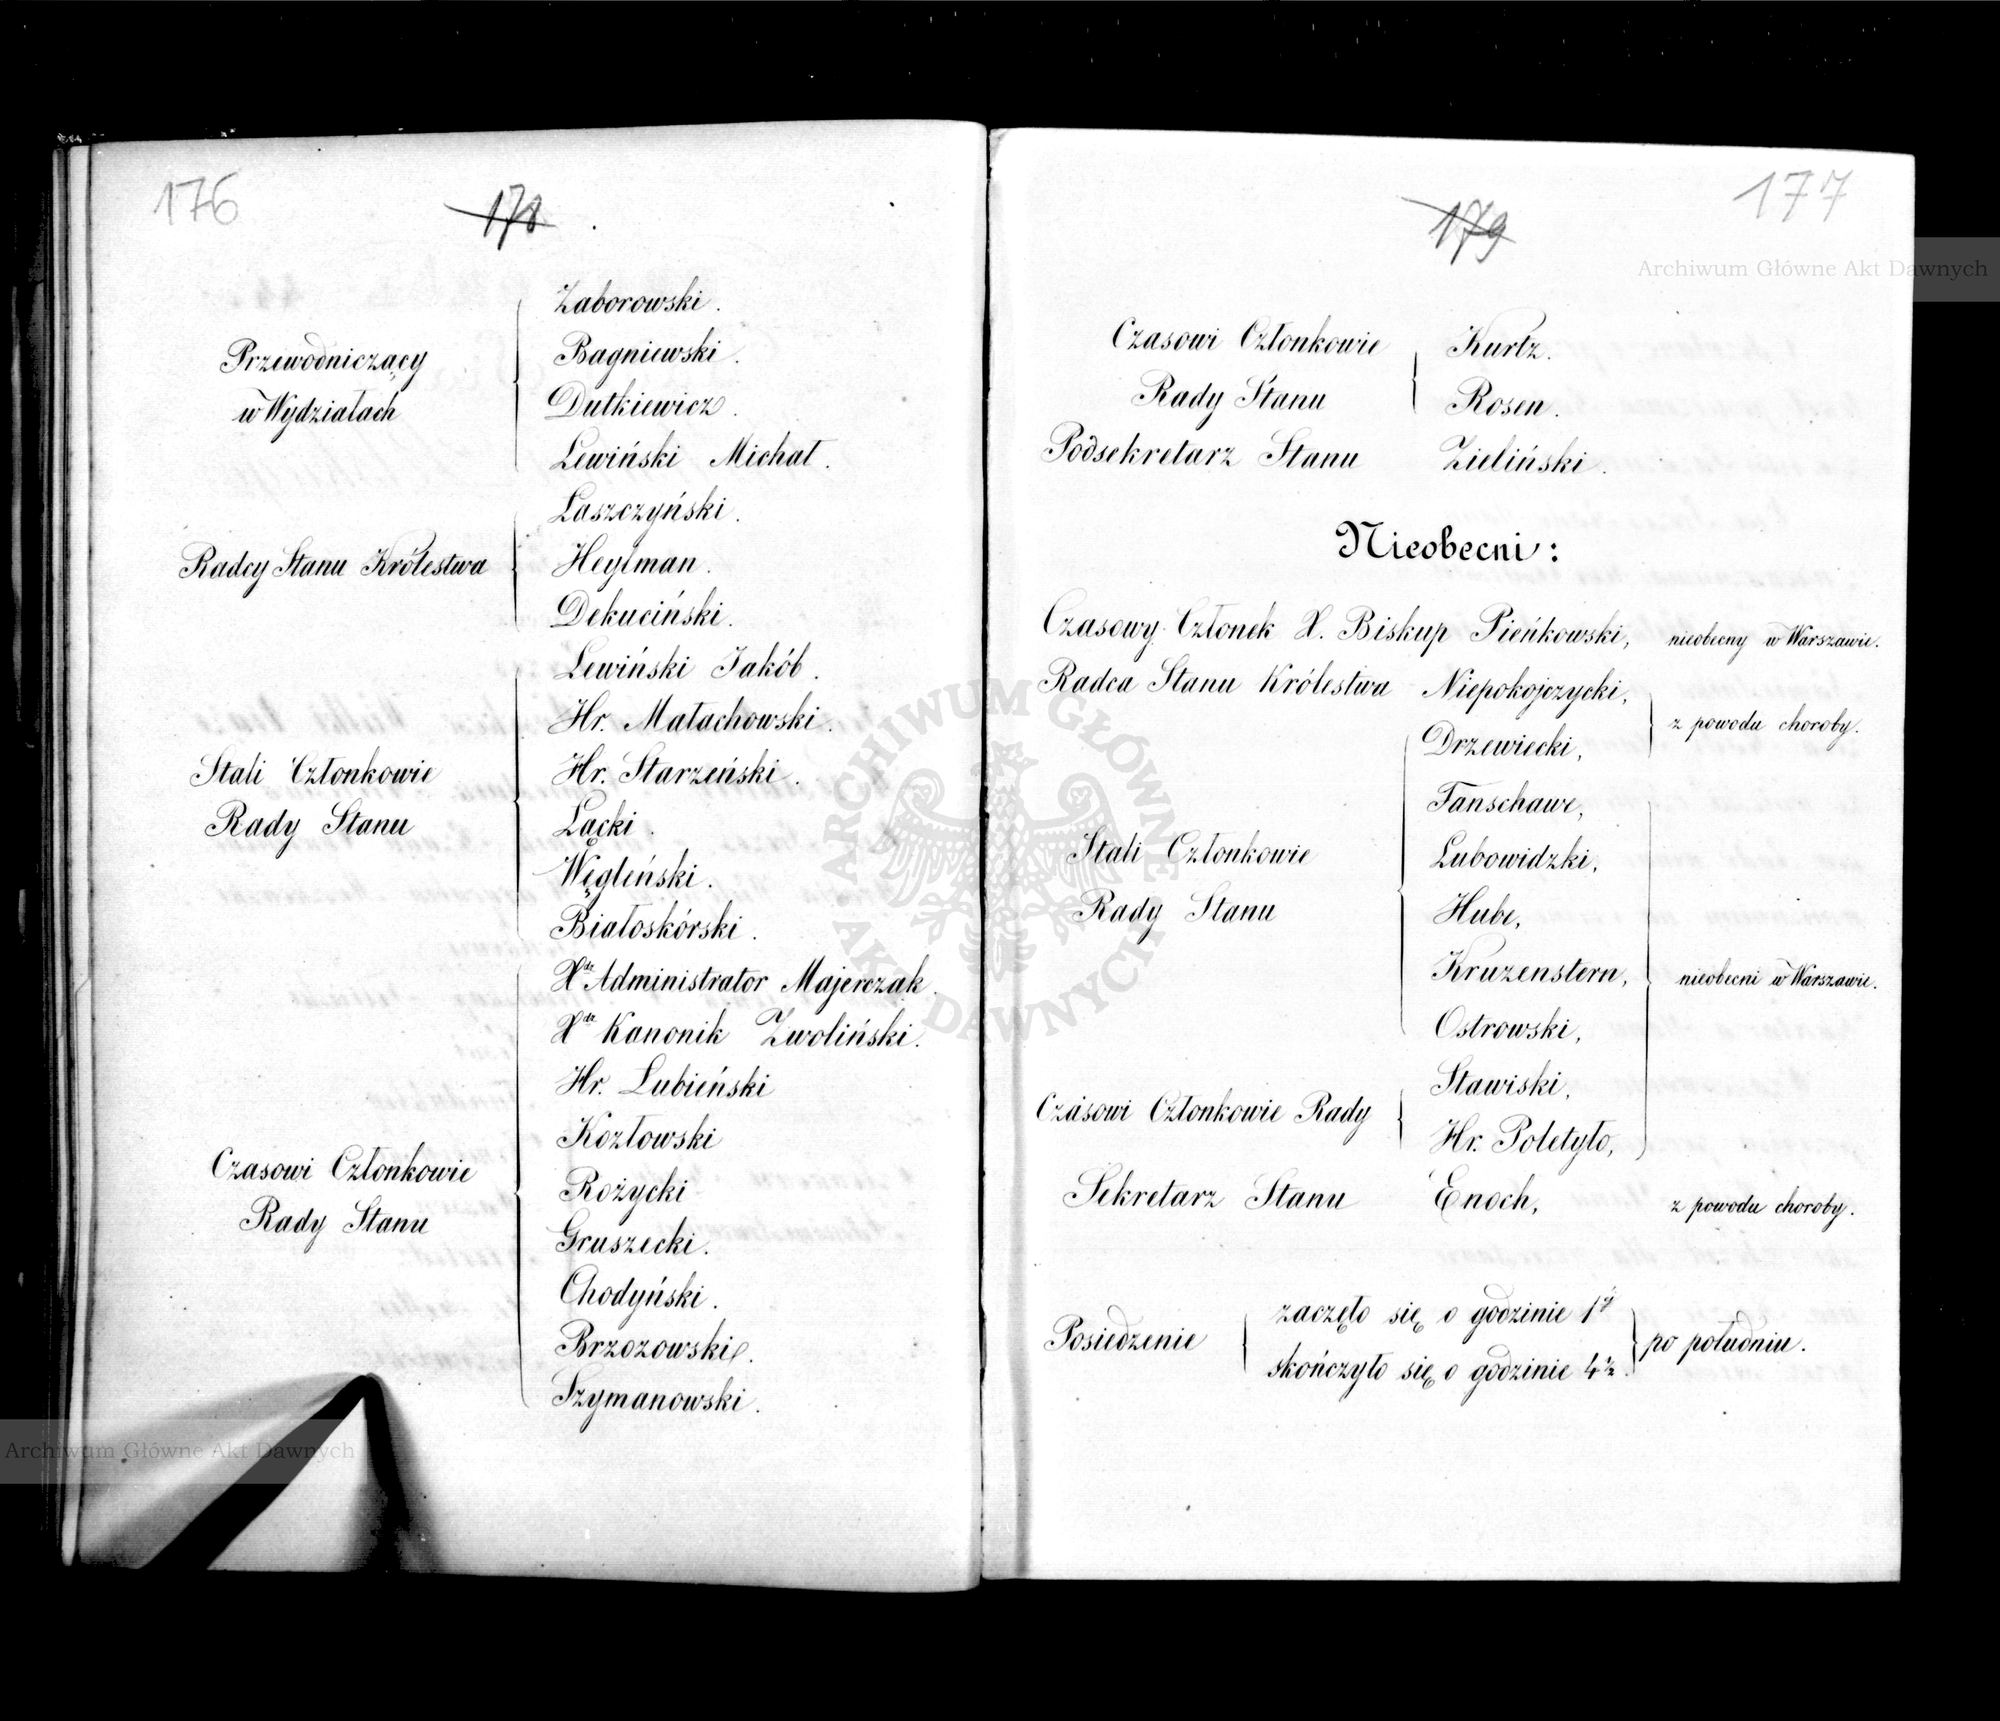 176
178
Zaborowski.
Przewodniczący
Bagniewski.
w Wydziałach
Dutkiewicz.
Lewiński Michał.
Laszczyński.
Radcy Stanu Królestwa
Heylman.
Dekuciński.
Lewiński Jakób.
Hr. Małachowski.
Stali Członkowie
Hr. Starzeński.
Rady Stanu
Łącki.
Węgleński.
Białoskórski.
X. Administrator Majerczak.
X. Kanonik Zwoliński.
Hr. Łubieński
Kozłowski
Czasowi Członkowie
Rożycki
Rady Stanu
Gruszecki.
Chodyński.
Brzozowski.
Szymanowski.
177
179
Czasowi Członkowie
Kurtz.
Rady Stanu
Rosen.
Podsekretarz Stanu Zieliński.
Nieobecni:
Czasowy Członek X. Biskup Pieńkowski, nieobecny w Warszawie.
Radca Stanu Królestwa Niepokojczycki,
z powodu choroby.
Drzewiecki,
Fanschawe,
Stali Członkowie
Łubowidzki,
Rady Stanu
Hube,
Kruzenstern,
nieobecni w Warszawie.
Ostrowski,
Stawiski,
Czasowi Członkowie Rady
Hr. Poletyło,
Sekretarz Stanu Enoch, z powodu choroby.
Posiedzenie
zaczęło się o godzinie 1éj
skończyło się o godzinie 4½.
po południu.
Archiwum Główne Akt Dawnych
ARCHIWUM GŁÓWNE AKT DAWNYCH
Archiwum Główne Akt Dawnych